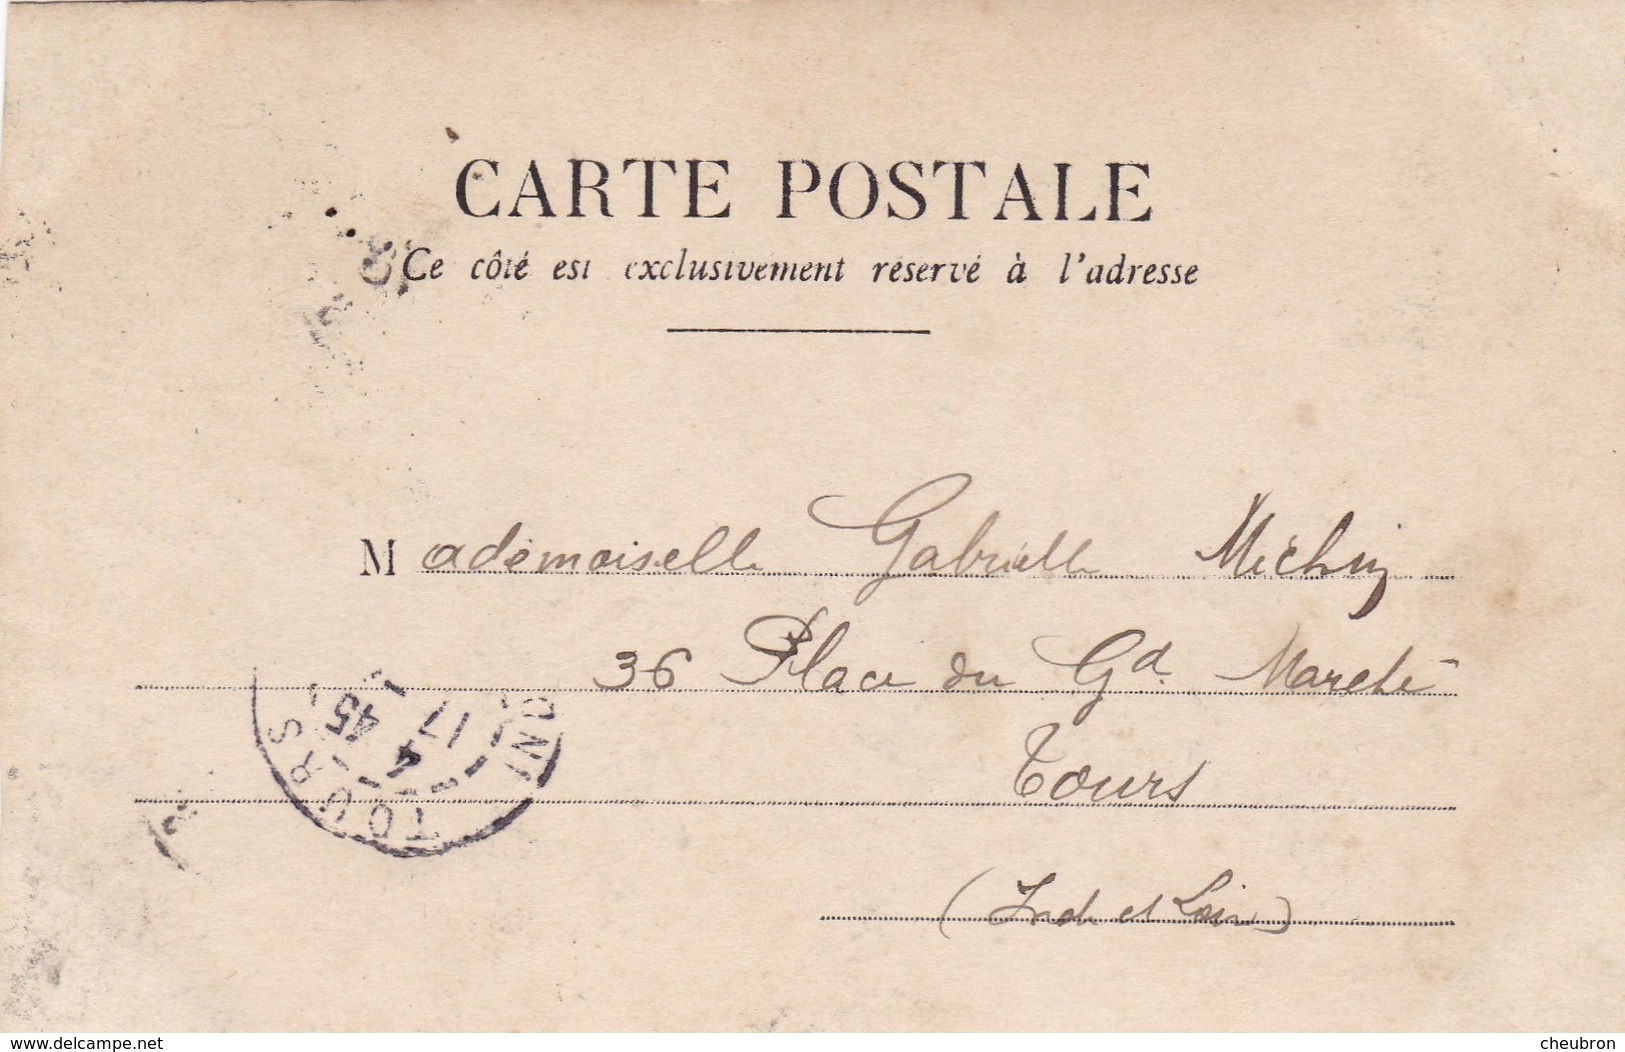 CARTE POSTALE
Ce côté est exclusivement réservé à l'adresse
Mademoiselle Gabrielle Michin
36 Place du Gd. Marché
Tours
(Indre et Loire)
TOURS
4 45
17
www.delcampe.net
cheubron